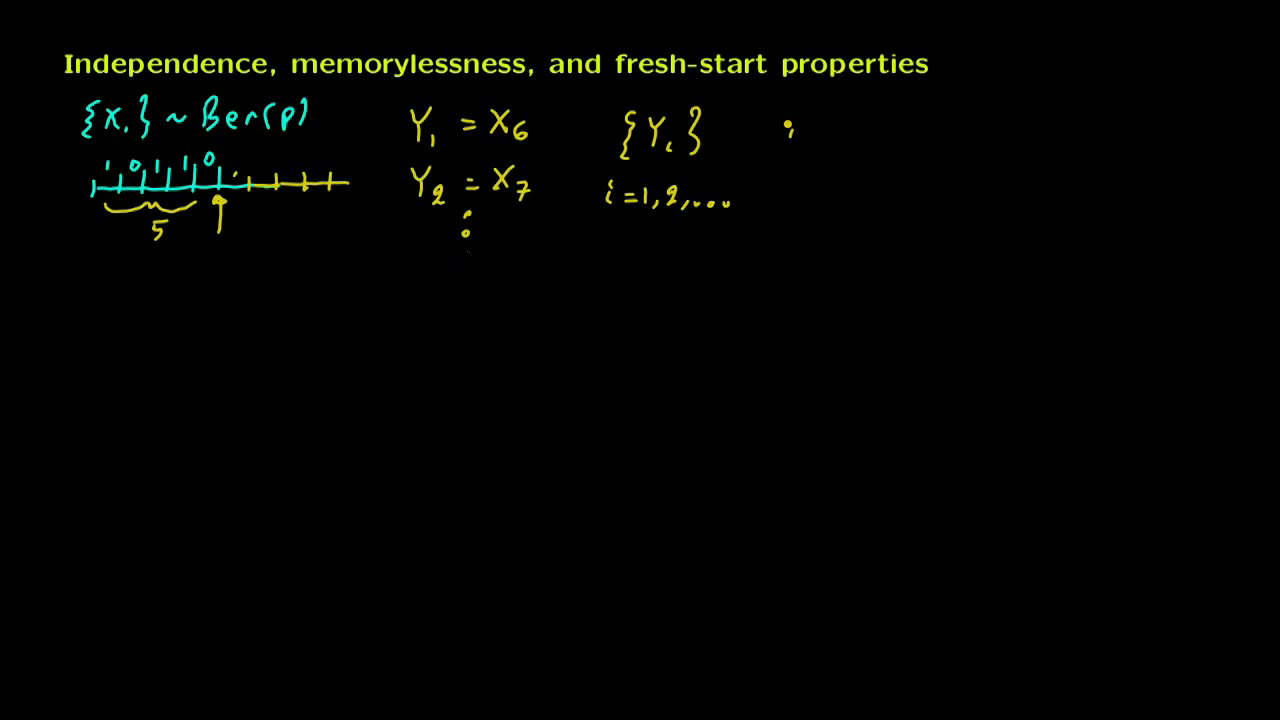 Independence, memorylessness, and fresh-start properties
{Xi} ~ Ber(p)
1 0 1 1 0
5
Y1 = X6
Y2 = X7
⋮
{Yi}
i = 1, 2, ...